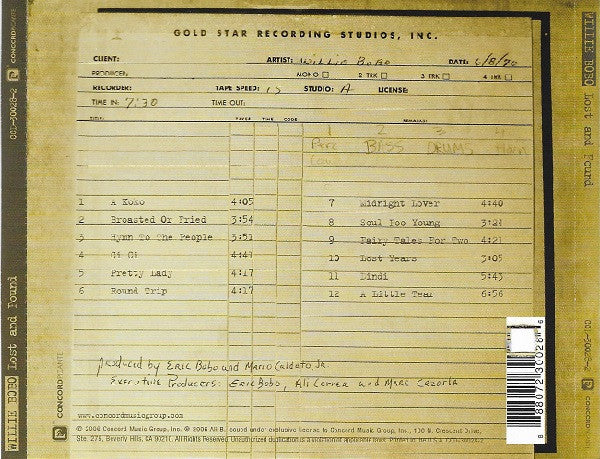 GOLD STAR RECORDING STUDIOS, INC.
CLIENT: ARTIST: Willie Bobo DATE: 6/8/70
PRODUCER: MONO 2 TRK 3 TRK 4 TRK
RECORDER: TAPE SPEED: 15 STUDIO: A LICENSE:
TIME IN: 7:30 TIME OUT:
TITLE: TIME CODE REMARKS:
1 2 3 4
Perc BASS DRUMS Horn
1 A Koko 4:05
2 Broasted Or Fried 3:54
3 Hymn To The People 3:51
4 Ci Ci 4:41
5 Pretty Lady 4:17
6 Round Trip 4:17
7 Midnight Lover 4:40
8 Soul Foo Young 3:21
9 Fairy Tales For Two 4:21
10 Lost Years 3:05
11 Lindi 5:43
12 A Little Tear 6:56
Produced by Eric Bobo and Mario Caldato Jr.
Executive Producers: Eric Bobo, Ali Correa and Marc Cazorla
www.concordmusicgroup.com
℗ 2006 Concord Music Group, Inc. © 2006 Ali B. sound under exclusive license to Concord Music Group, Inc., 100 N. Crescent Drive,
Ste. 275, Beverly Hills, CA 90210. All Rights Reserved. Unauthorized duplication is a violation of applicable laws. Printed in
WILLIE BOBO Lost and Found
CCD-30028-2
CONCORD PICANTE
WILLIE BOBO Lost and Found
CCD-30028-2
CONCORD PICANTE
8 88072 30028 6